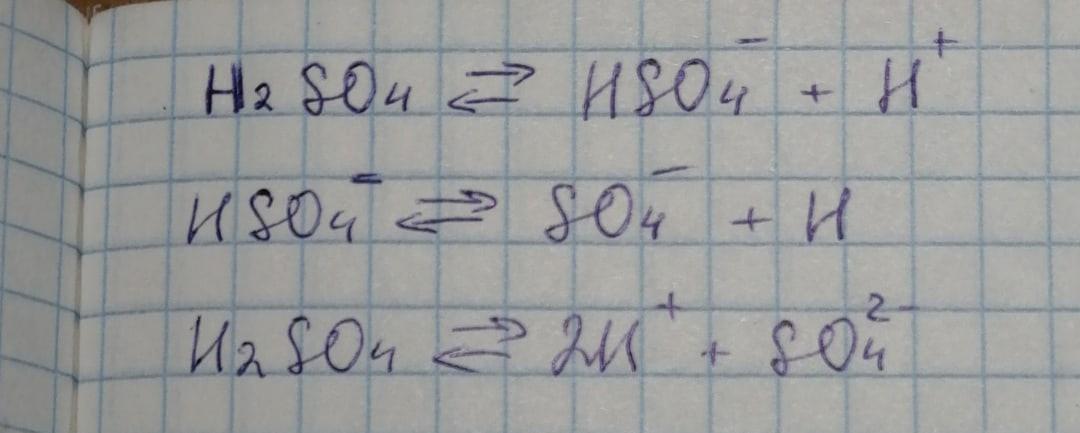 H₂SO₄ ⇄ HSO₄⁻ + H⁺
HSO₄⁻ ⇄ SO₄⁻ + H
H₂SO₄ ⇄ 2H⁺ + SO₄²⁻